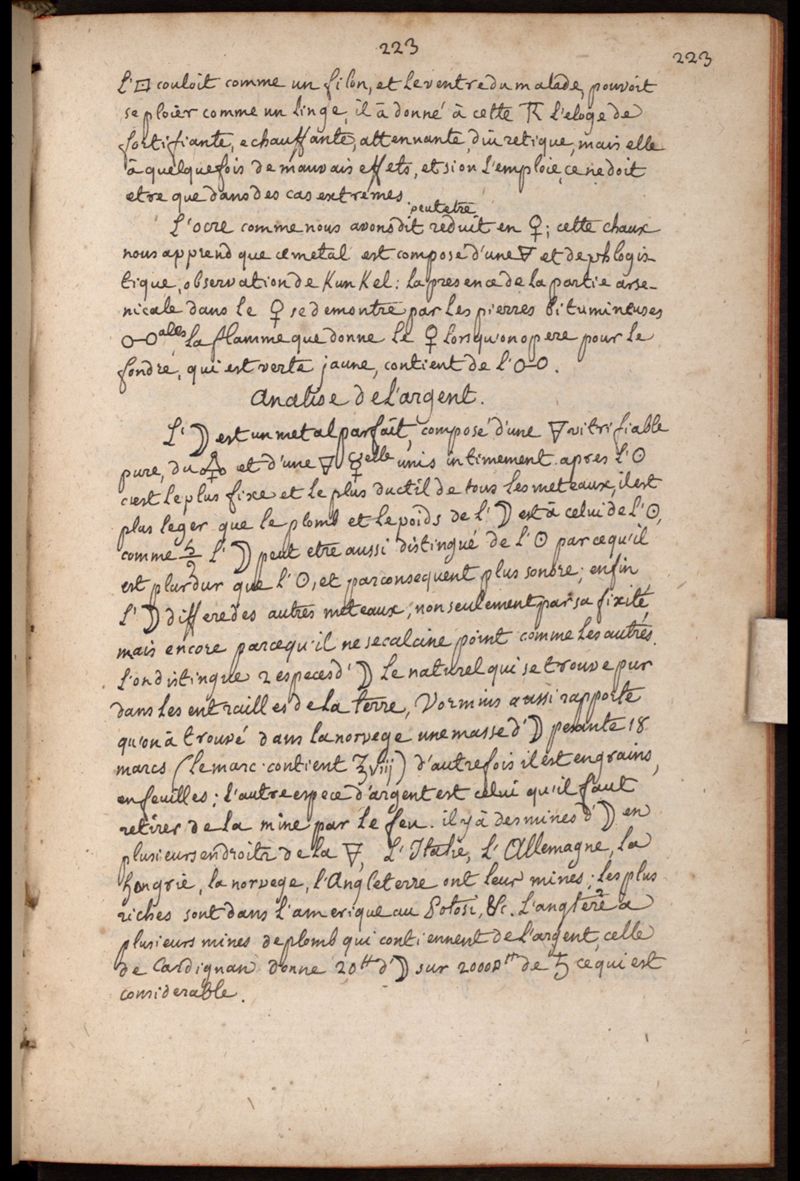 223
223
L'□ couloit comme un filon, et le ventre du malade, pouvoit
se ploïer comme un linge, il à donné à cette TR L'eloge de
fortifiante, echauffante, attennante diuretique, mais elle
à quelquefois de mauvais effets, et si on l'emploie, ce ne doit
etre que dans des cas extremes.
peutetre
L'ocre comme nous avons dit reduit en ♀; cette chaux
nous apprend que ce metal est composé d'une 🜃 et de phlogis
tique, observation de Kunkel: la presence de la partie arse-
nicale dans le ♀ se demontre par les pierres bitumineuses
o-o ales, la flamme que donne le ♀ lorsqu'on opere pour le
fondre, qui est verte jaune, contient de l'o-o.
Analise de L'argent.
L'☽ est un metal parfait, composé d'une 🜃 vitrifiable
pure, du 🜍 et d'une 🜃 ☿elle unis intimement. apres l'☉
c'est le plus fixe et le plus ductil de tous les meteaux, il est
plus leger que le plomb et le poids de l'☽ est à celui de l'☉,
comme 5/9 L'☽ peut etre aussi distingué de l'☉ parcequ'il
est plus dur que l'☉, et par consequent plus sonore; enfin
L'☽ differe des autres meteaux, non seulement par sa fixité,
mais encore parcequ'il ne se calcine point comme les autres.
L'on distingue 2 especes d'☽ le naturel qui se trouve pur
dans les entrailles de la terre, Vormius aussi rapporte
qu'on à trouvé dans la norvege une masse d'☽ pesante 18
marcs (le marc contient ℥viij) d'autrefois il est en grains,
en feuilles; L'autre espece d'argent est celui qu'il faut
retirer de la mine par le feu. il y à des mines d'☽ en
plusieurs endroits de la 🜃, L'Italie, L'Allemagne, la
hongrie, la norvege, l'Angleterre ont leur mines; les plus
riches sont dans l'amerique au Potosi, &c. L'angterre a
plusieurs mines de plomb qui contiennent de l'argent, celle
de Cardignan donne 20 tt d'☽ sur 2000 tt de ♄ ce qui est
considerable.